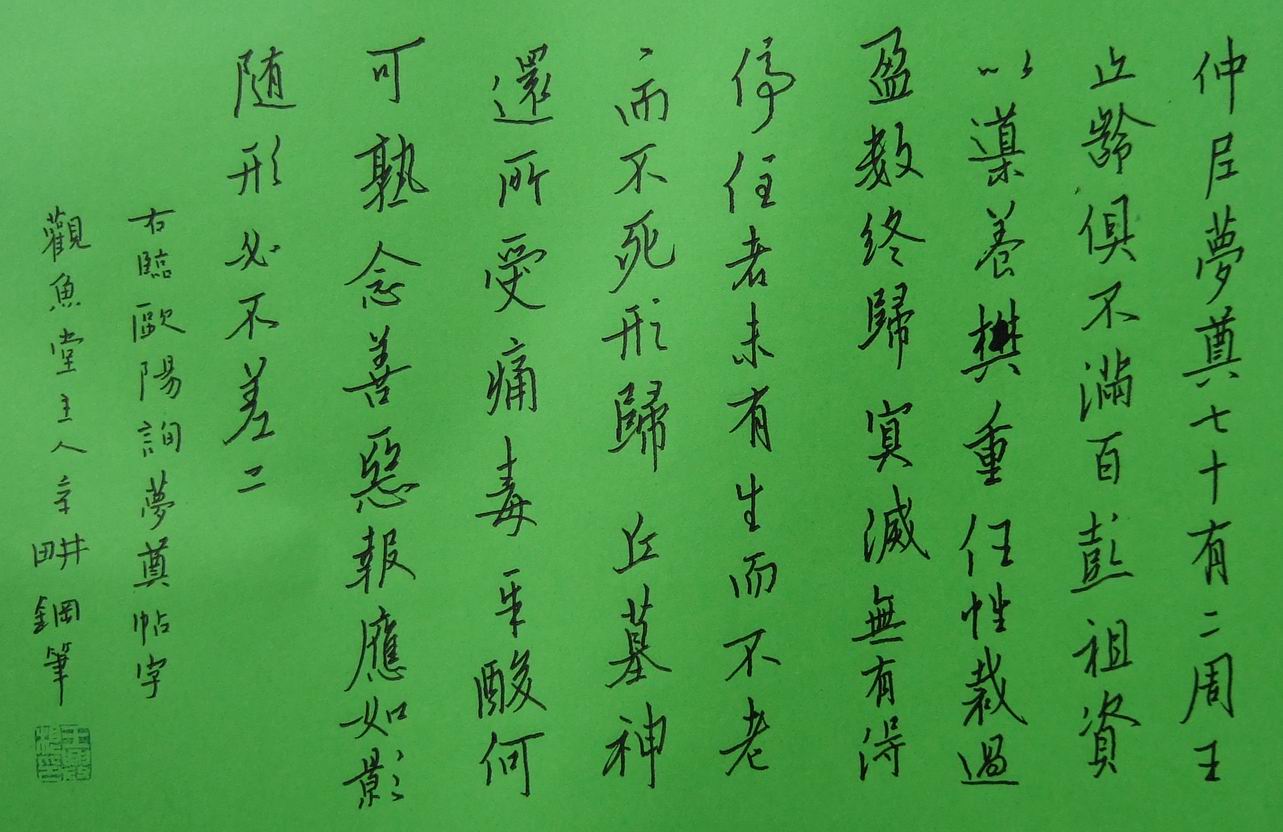 仲尼夢奠七十有二周王
止齡俱不滿百彭祖資
以導養樊重任性裁過
盈數終歸冥滅無有得
停住者未有生而不老
〻而不死形歸丘墓神
還所受痛毒辛酸何
可熟念善惡報應如影
隨形必不差二
右臨歐陽詢夢奠帖字
觀魚堂主人畊鋼筆